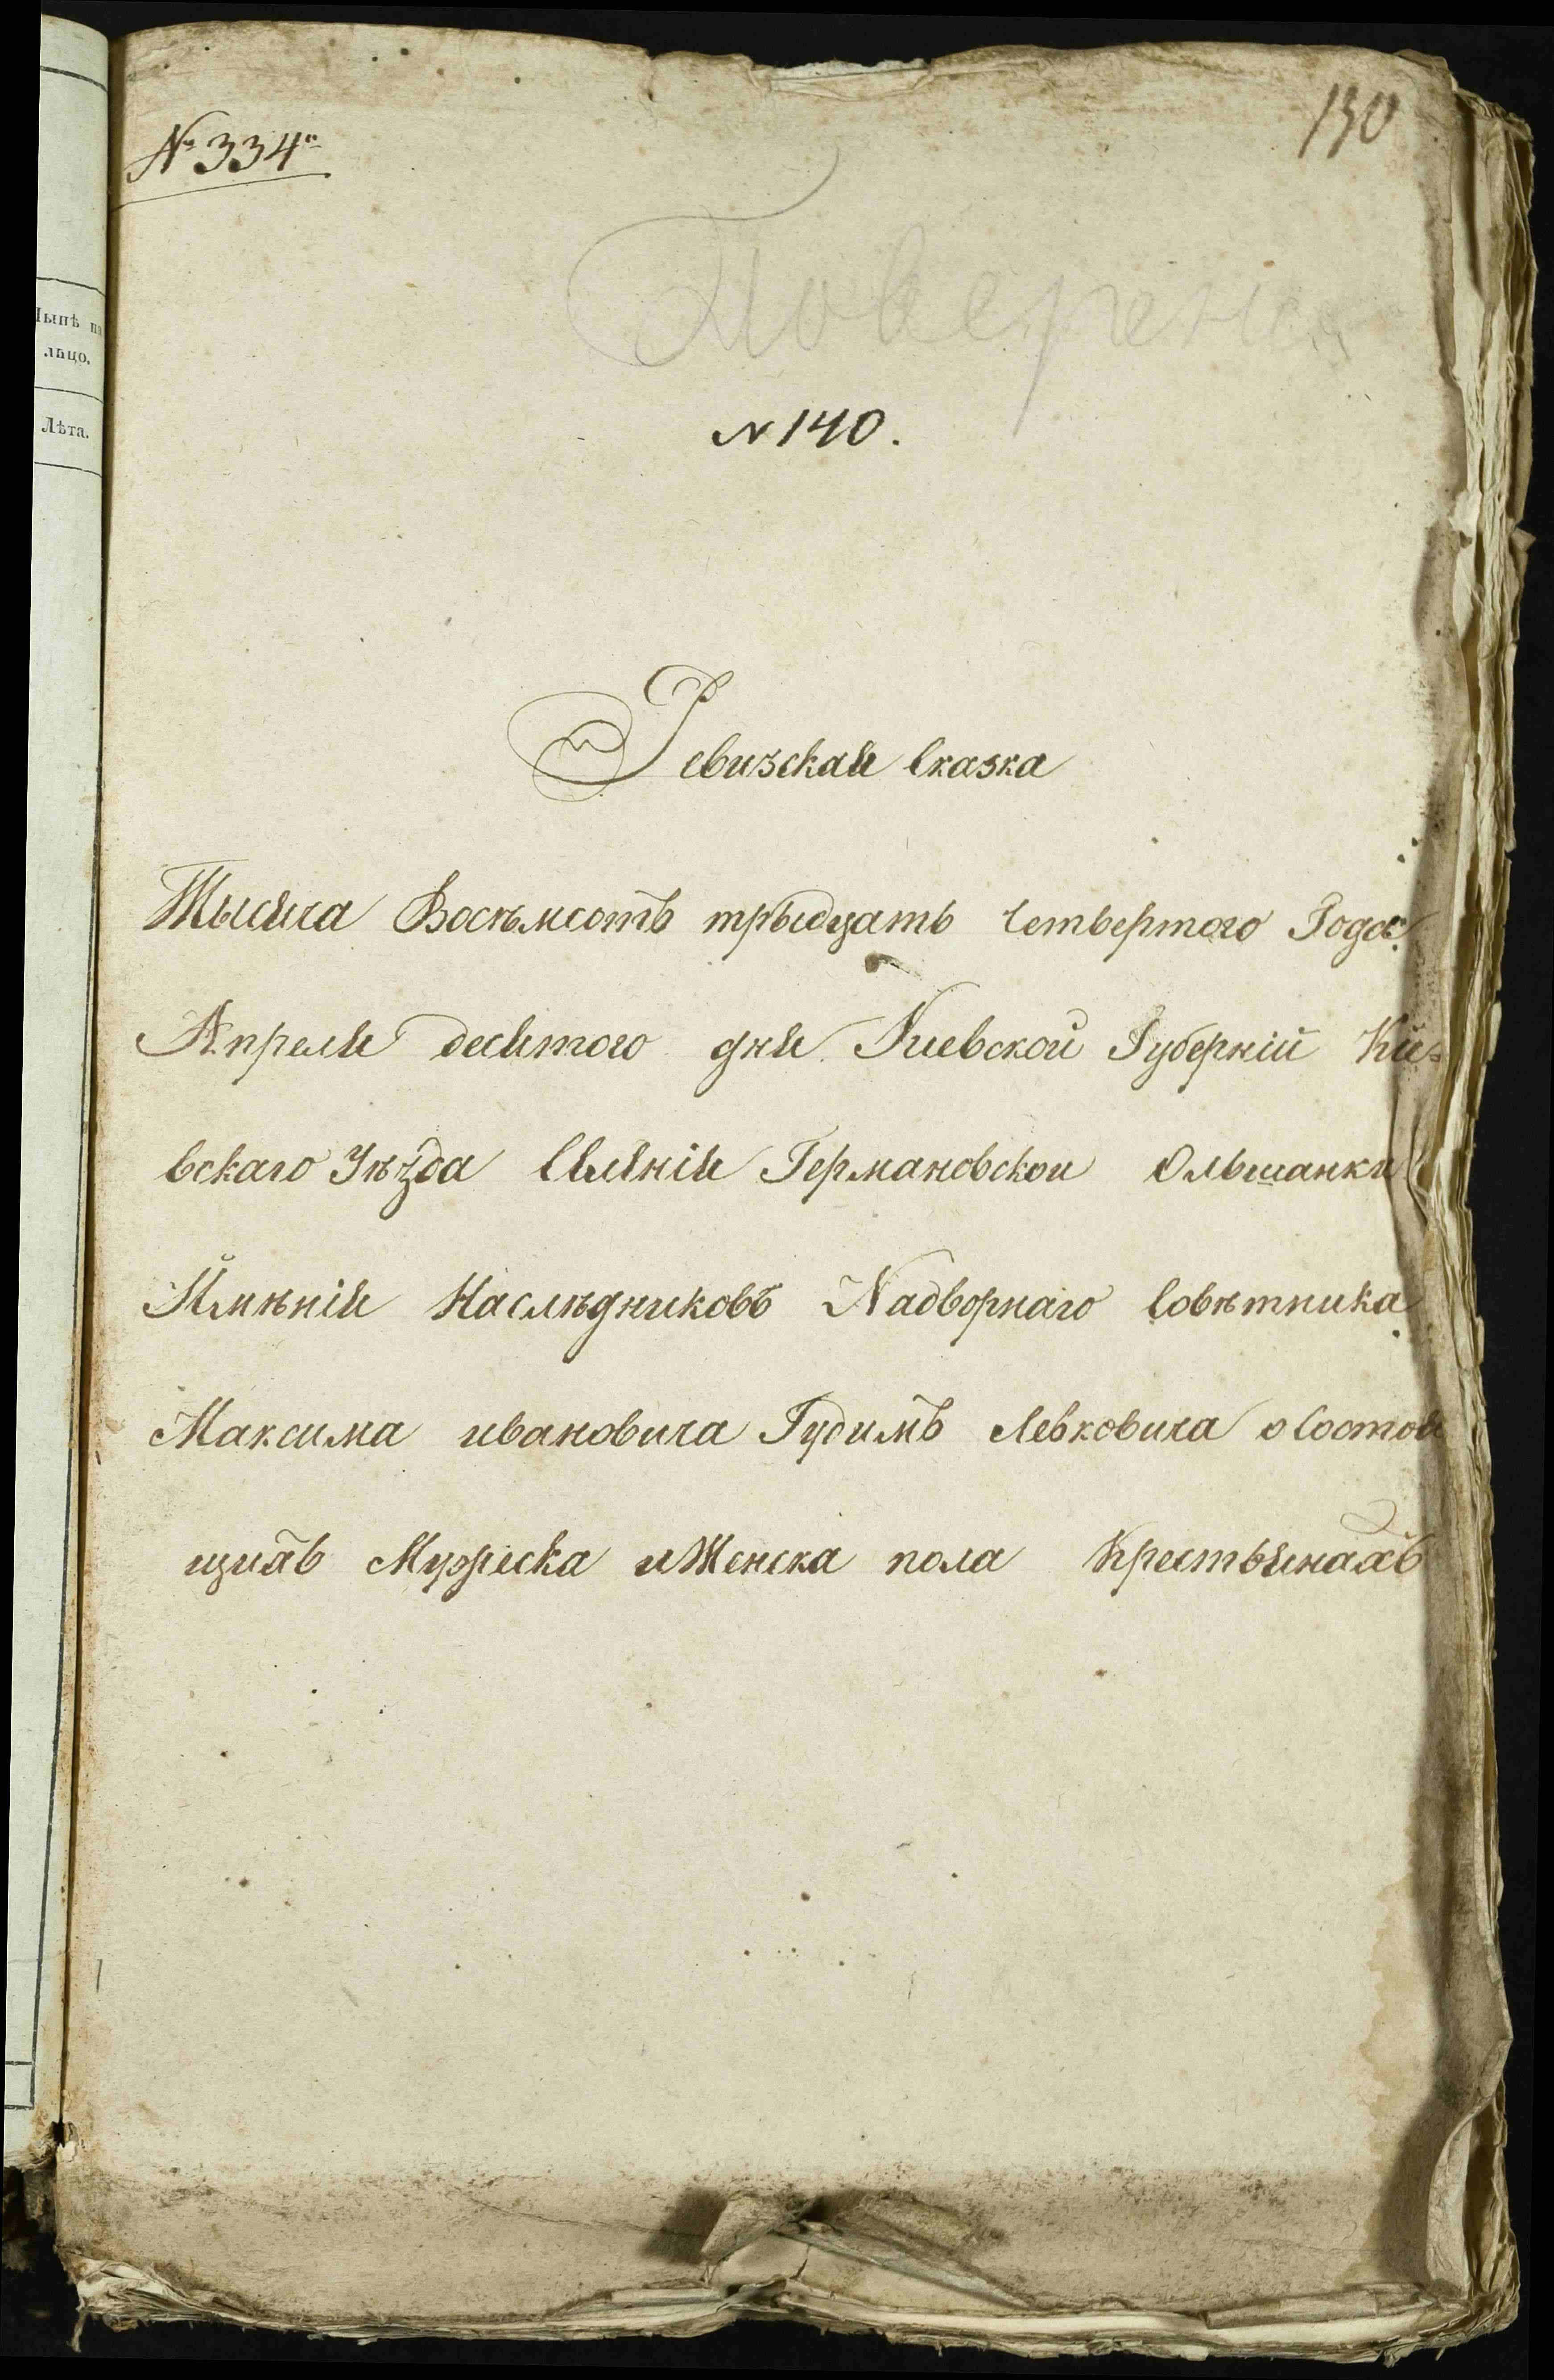 № 334й
130
Поверена
N 140.
Ревизская Сказка
Тысяча Восѣмсотъ трыдцать Четвертого Года
Апреля десятого дня Киевской Губерній Ки=
вскаго Уѣзда Селенія Германовской Ольшанки
Имѣнія Наслѣдниковъ Надворнаго Совѣтника
Максима ивановича Гудимъ Левковича о Состоя
щихъ Мужеска и Женска пола Крестьянахъ
Нынѣ на
лицо.
Лѣта.